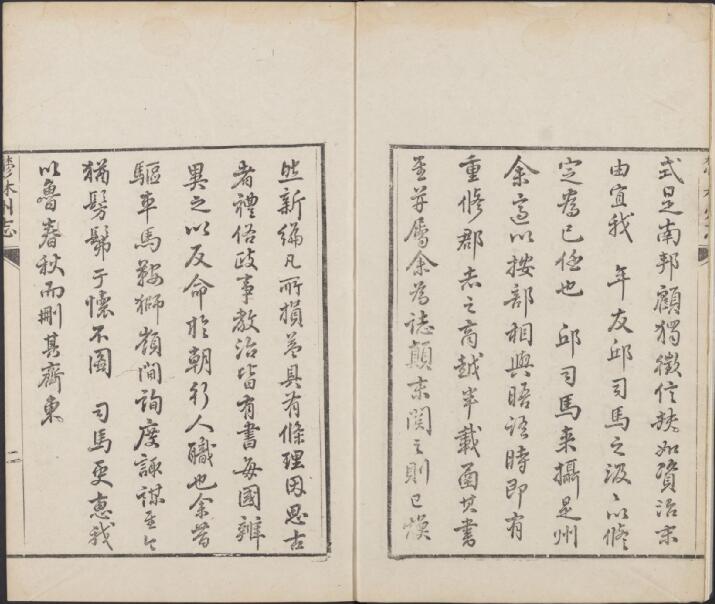 式是南邦顧獨徵信缺如資治末
由宜我 年友邱司馬之汲〻以修
定為己任也 邱司馬来攝是州
余適以按部相與晤語時即有
重修郡志之商越半載函其書
至並屬余為誌顛末閱之則已煥
然新編凡所損益具有條理因思古
者禮俗政事教治皆有書每國辨
異之以反命於朝行人職也余昔
驅車馬鞍獅嶺間詢度諏謀至今
猶髣髴于懷不圖 司馬更惠我
以魯春秋而刪其齊東
林州志
二